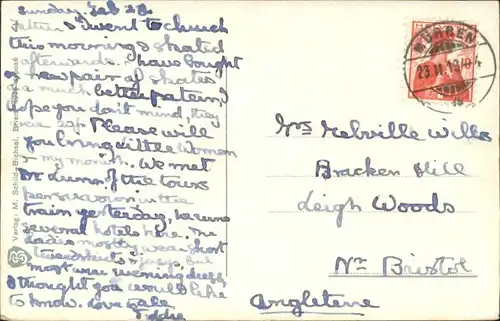 Sunday. Feb 23.
I went to church
this morning & skated
afterwards. I have bought
a new pair of skates
a much better pattern, I
hope you don't mind, they
were Please will
you bring Little Women
& my monish. We met
Dr Lunn of the tours
in the
train yesterday, he runs
several hotels here. The
ladies mostly wear short
tweed skirts & but
most wear evening dress,
I thought you would like
to know. love
MÜRREN
23. II.
Mrs Melville Wills
Bracken Hill
Leigh Woods
Nr Bristol
Angleterre
Verlag: M. Schild-Bichsel, Brienz